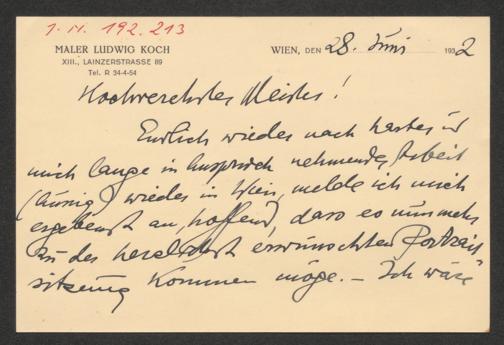 I. N. 192.213
MALER LUDWIG KOCH
XIII., LAINZERSTRASSE 89
Tel. R 34-4-54
WIEN, DEN 28. Juni 1932
Hochverehrtes Meister!
Endlich wieder nach harter u
mich lange in Anspruch nehmender Arbeit
(Aussig) wieder in Wien, melde ich mich
ergebenst an, hoffend, dass es nunmehr
zu der herzlichst erwünschten Portrait
sitzung kommen möge. – Ich wäre